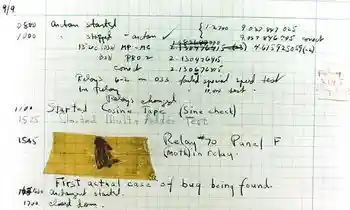 9/9
0800 antan started
1000 " stopped - antan ✓ { 1.2700 9.037 847 025
9.037 846 995 correct
13"uc (032) MP-MC 2.130476415 (-3) 4.615925059(-2)
(033) PRO 2 2.130476415
correct 2.130676415
Relays 6-2 in 033 failed special speed test
in relay " 11.000 test.
Relays changed
1100 Started Cosine Tape (Sine check)
1525 Started Multi Adder Test.
1545 Relay #70 Panel F
(Moth) in relay.
First actual case of bug being found.
antangent started.
1700 closed down.